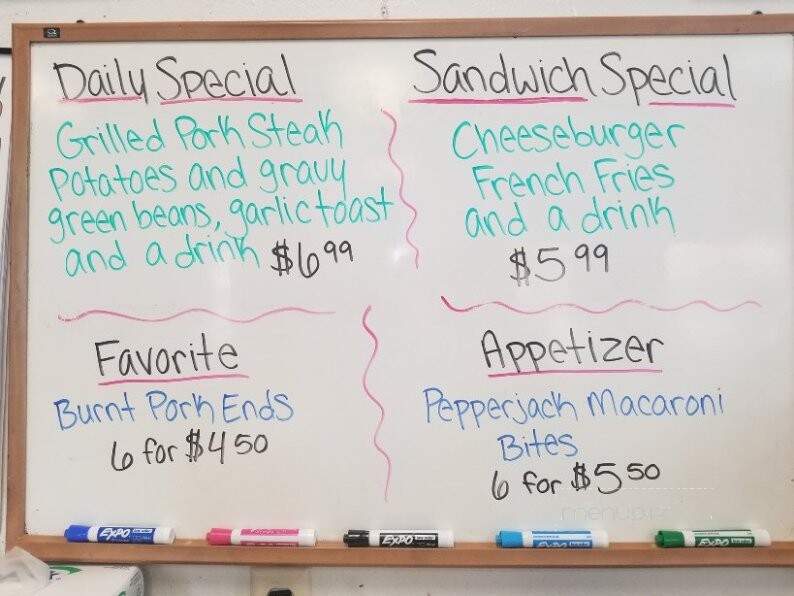 Daily Special
Grilled Pork Steak
Potatoes and gravy
green beans, garlic toast
and a drink $6 99
Sandwich Special
Cheeseburger
French Fries
and a drink
$5 99
Favorite
Burnt Pork Ends
6 for $4 50
Appetizer
Pepperjack Macaroni
Bites
6 for $5 50
EXPO
EXPO
EXPO
EXPO